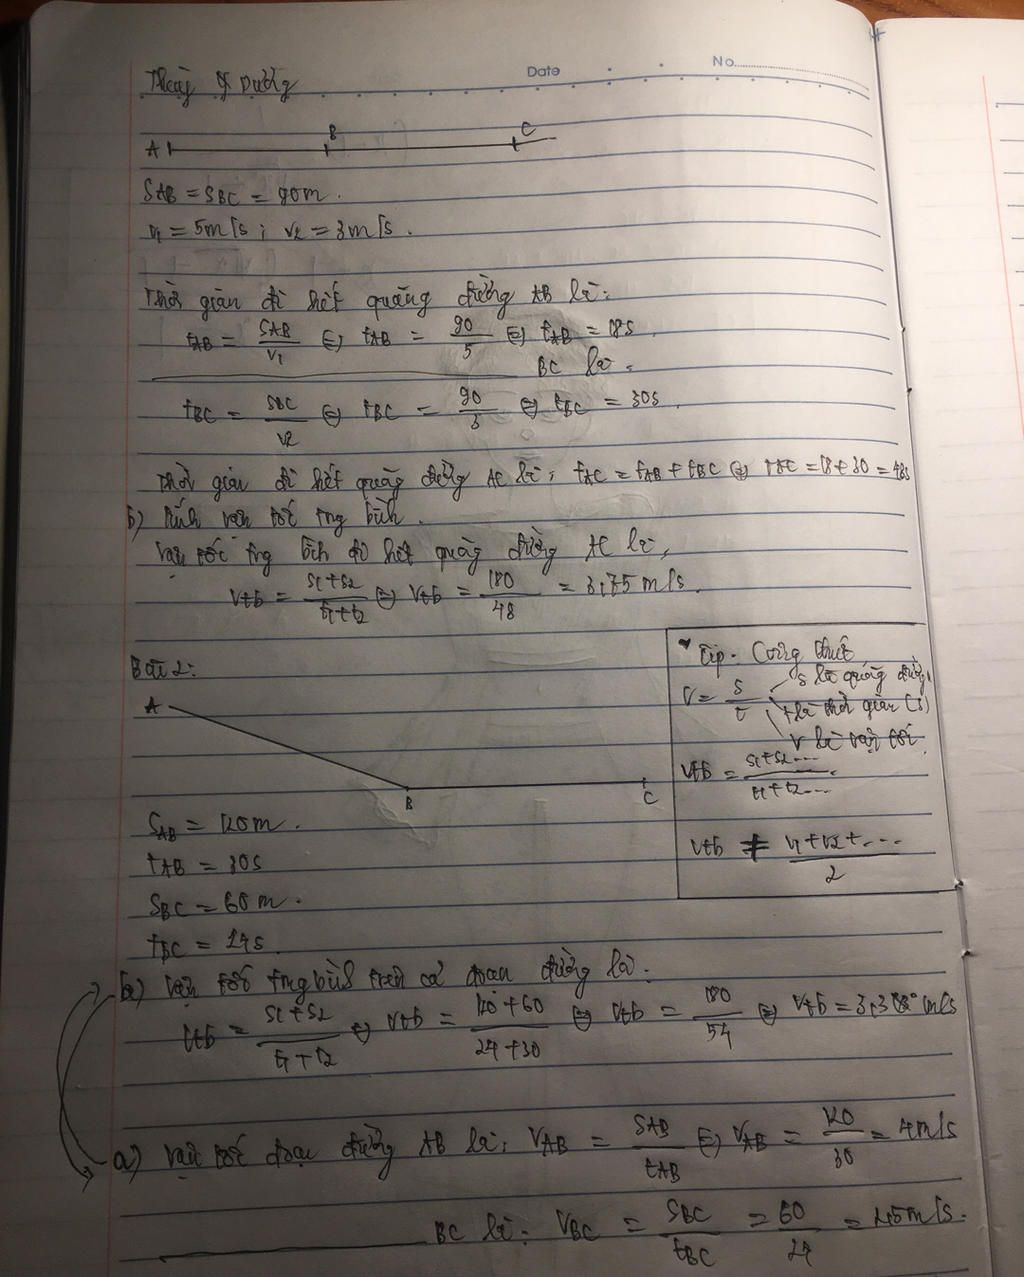 Date No.
Thầy Dưỡng
A B C
SAB = SBC = 90m.
v1 = 5m/s ; v2 = 3m/s.
Thời gian đi hết quãng đường AB là:
tAB = SAB/v1 ⇔ tAB = 90/5 ⇔ tAB = 18s.
BC là:
tBC = SBC/v2 ⇔ tBC = 90/3 ⇔ tBC = 30s.
Thời gian đi hết quãng đường AC là: tAC = tAB + tBC ⇔ tAC = 18 + 30 = 48s
b) Tính vận tốc tng bình.
Vận tốc tng bình đi hết quãng đường AC là:
vtb = s1+s2/t1+t2 ⇔ vtb = 180/48 = 3,75 m/s.
Bài 2:
A B C
Tip - Công thức
v = s/t
s là quãng đường
t là thời gian (s)
v là vận tốc.
vtb = s1+s2.../t1+t2...
vtb ≠ v1+v2+.../2
SAB = 120m.
tAB = 30s
SBC = 60m.
tBC = 24s
b) Vận tốc tng bình trên cả đoạn đường là.
vtb = s1+s2/t1+t2 ⇔ vtb = 120+60/24+30 ⇔ vtb = 180/54 ⇔ vtb = m/s
a) Vận tốc đoạn đường AB là: vAB = SAB/tAB ⇔ vAB = 120/30 = 4m/s
BC là: vBC = SBC/tBC = 60/24 = 2,5m/s.